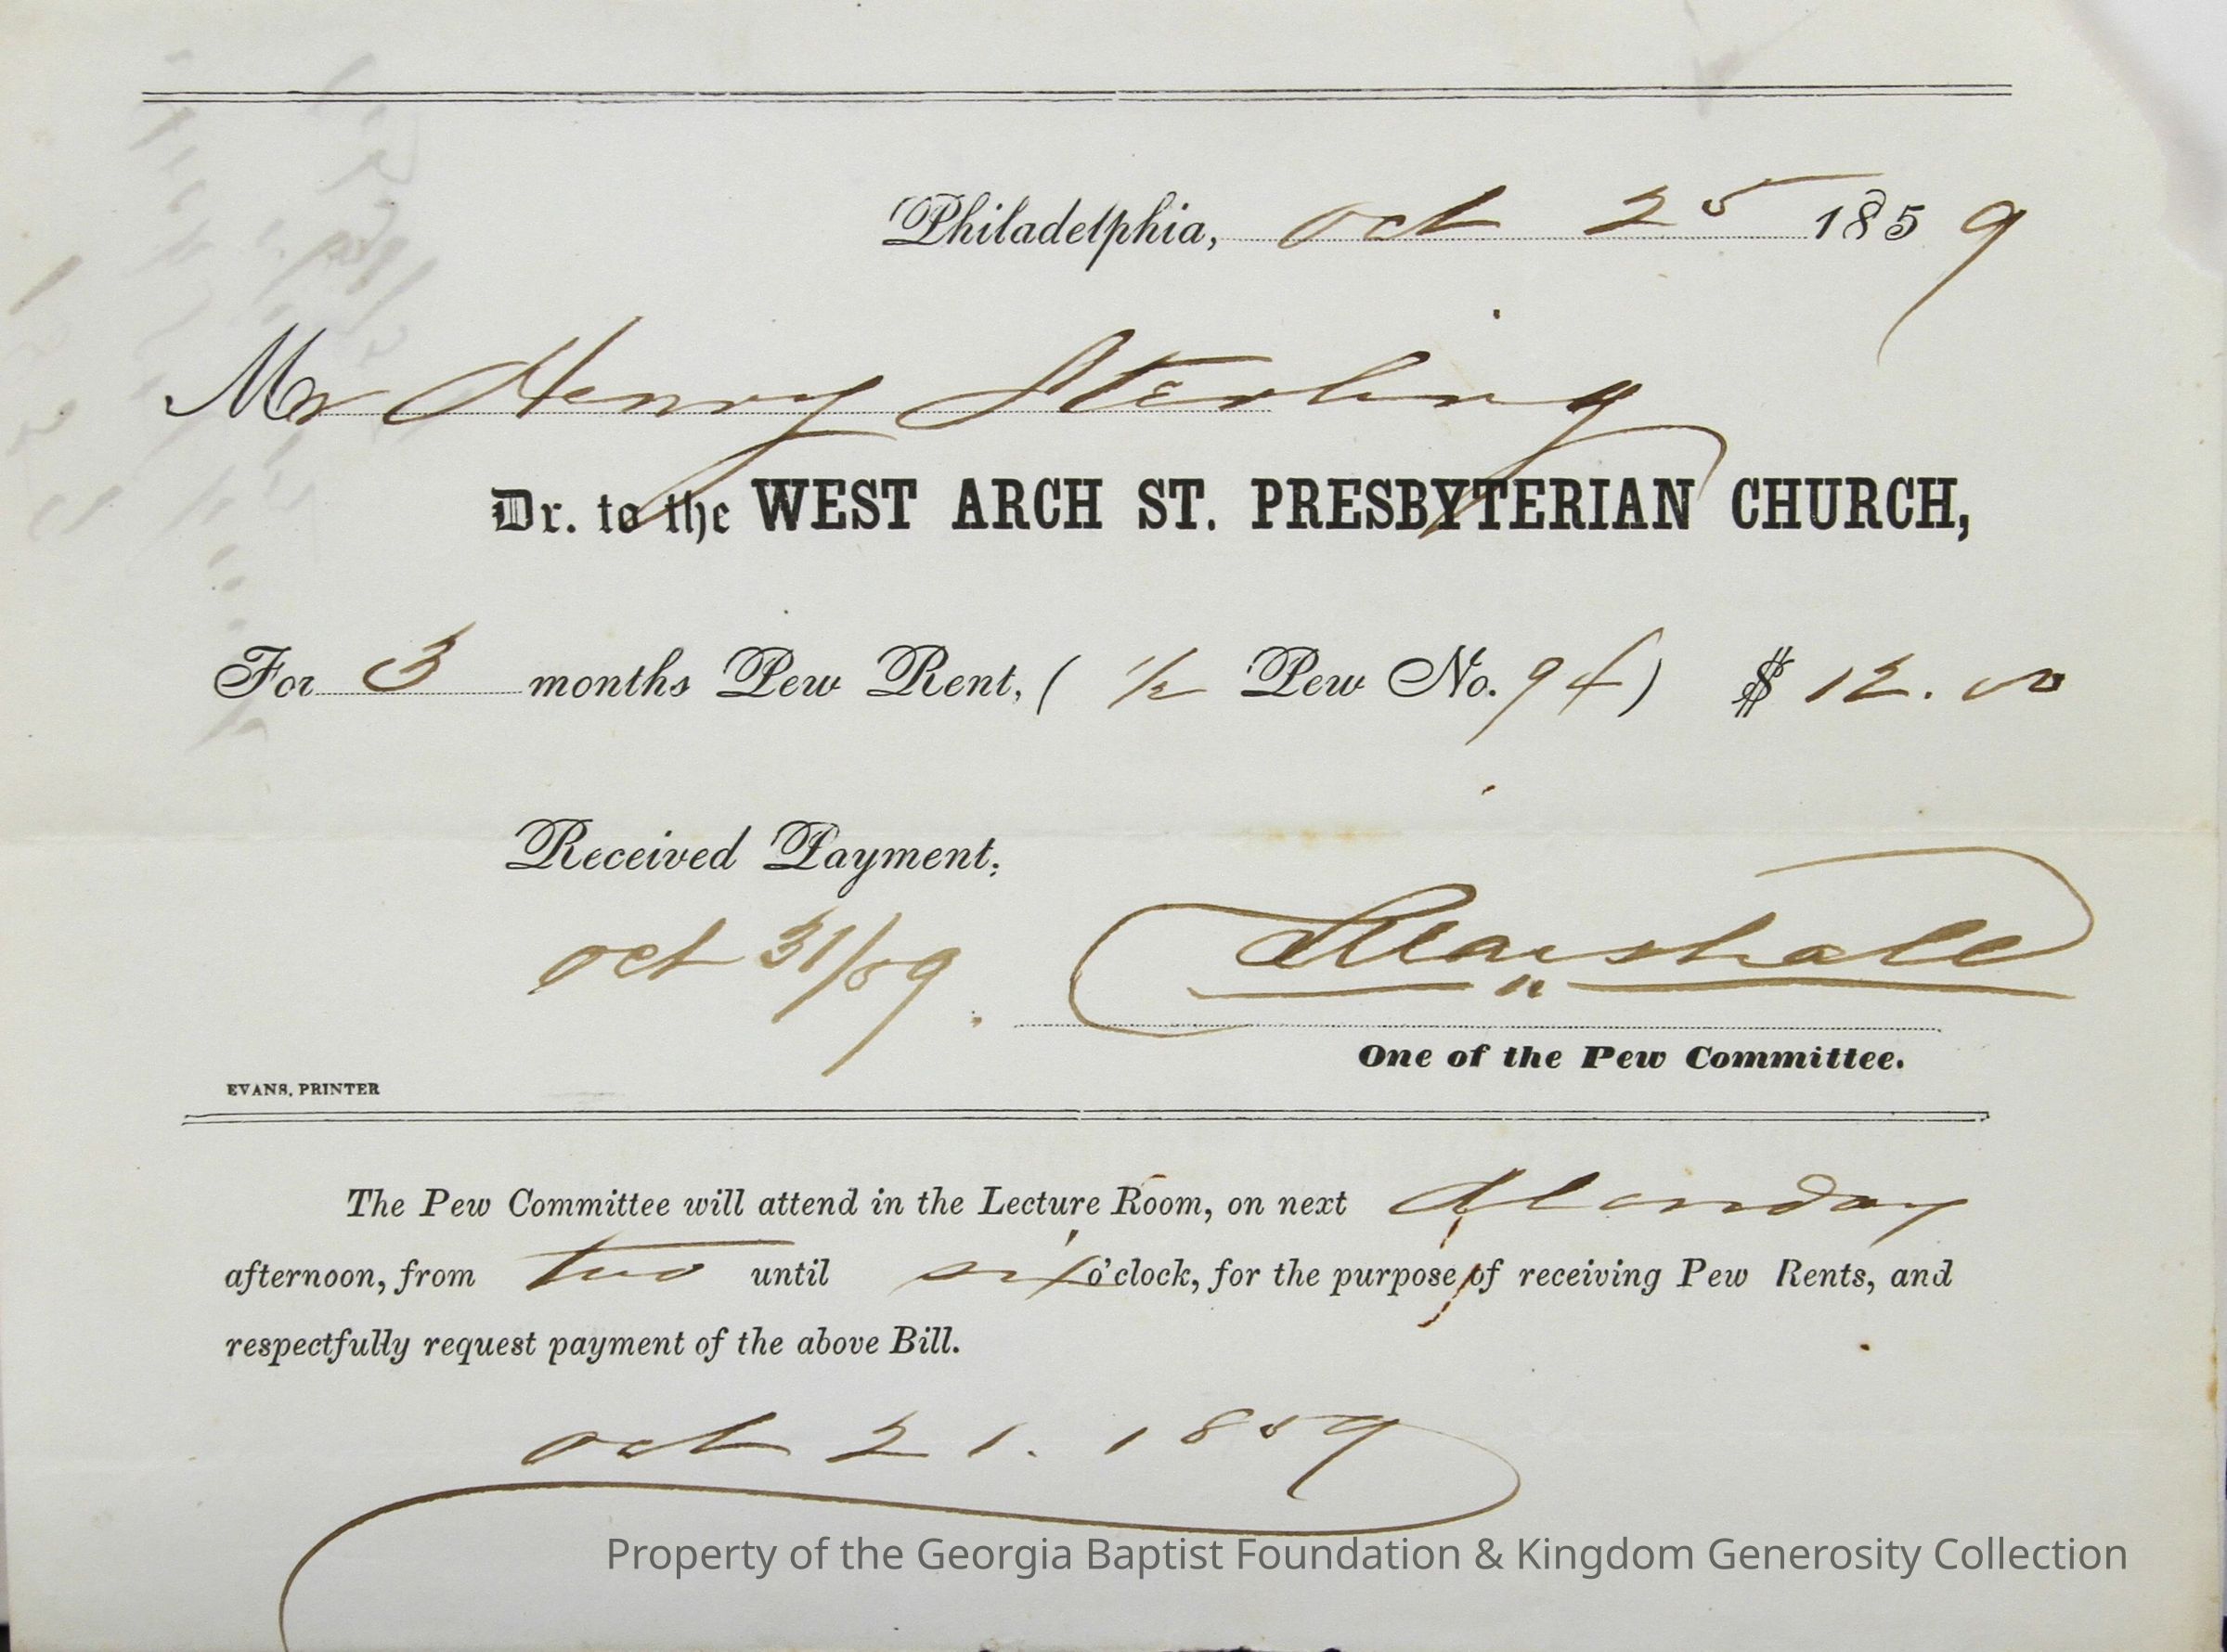 Philadelphia, Oct 25 1859
Mr Henry Sterling
Dr. to the WEST ARCH ST. PRESBYTERIAN CHURCH,
For 3 months Pew Rent, ( 1/2 Pew No. 94 ) $ 12.00
Received Payment,
Oct 31/59. Marshall
One of the Pew Committee.
EVANS, PRINTER
The Pew Committee will attend in the Lecture Room, on next Monday
afternoon, from two until six o'clock, for the purpose of receiving Pew Rents, and
respectfully request payment of the above Bill.
Oct 21. 1859
Property of the Georgia Baptist Foundation & Kingdom Generosity Collection